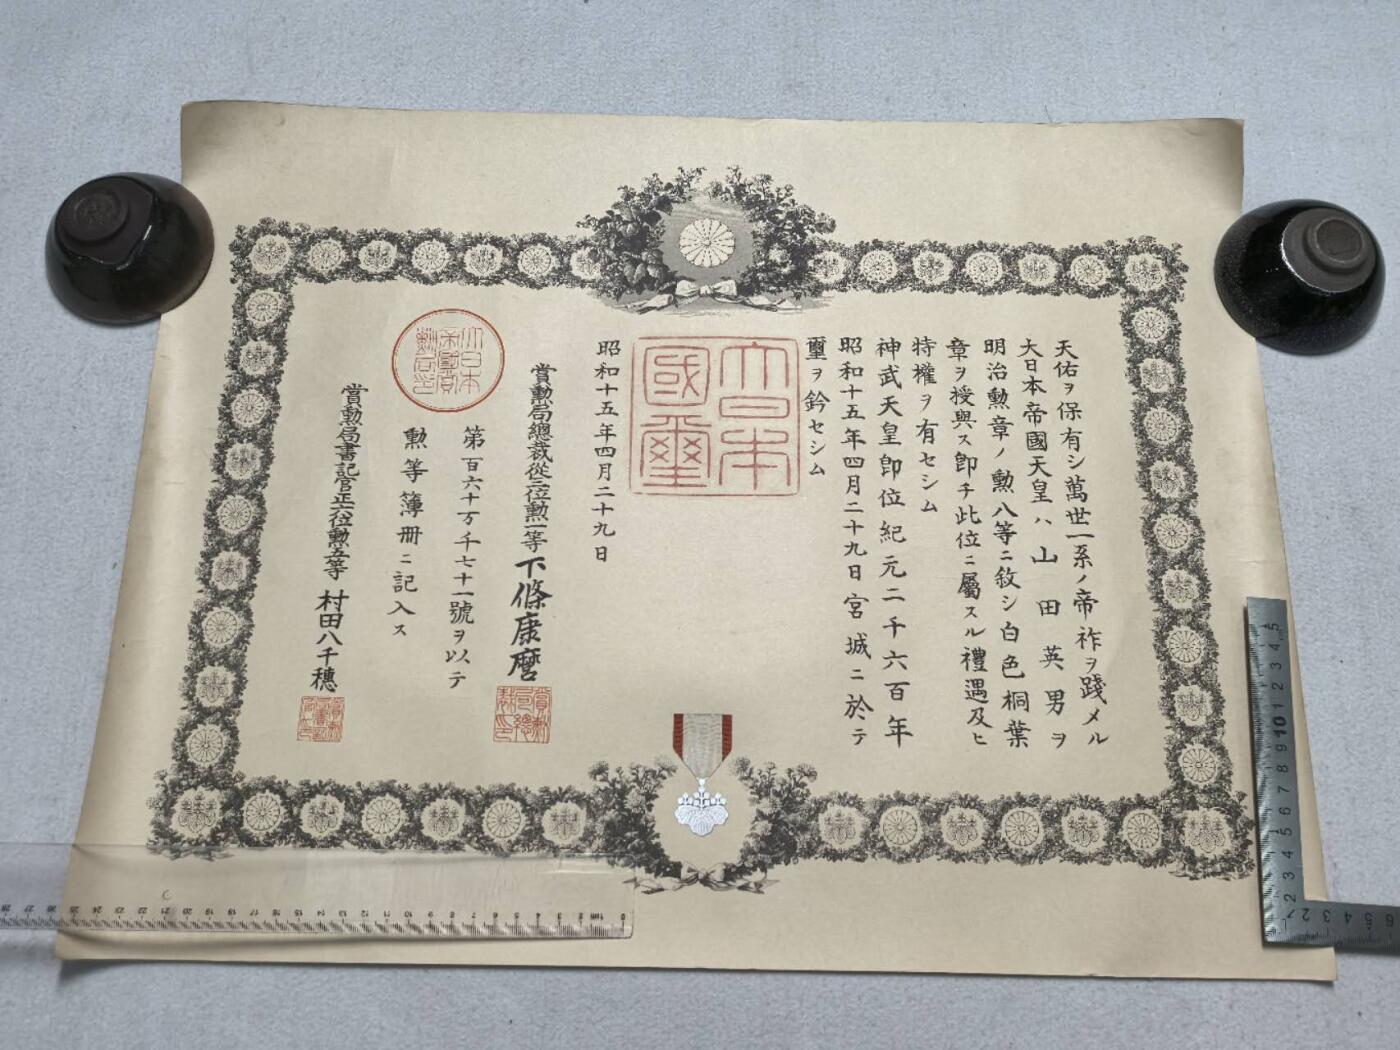 天佑ヲ保有シ萬世一系ノ帝祚ヲ踐メル
大日本帝國天皇ハ山田英男ヲ
明治勲章ノ勲八等ニ敘シ白色桐葉
章ヲ授與ス即チ此位ニ屬スル禮遇及ヒ
特權ヲ有セシム
神武天皇即位紀元二千六百年
昭和十五年四月二十九日宮城ニ於テ
璽ヲ鈐セシム
大日本
國璽
昭和十五年四月二十九日
賞勲局總裁從三位勲一等下條康麿
賞勲局總裁印
第百六十万千七十一號ヲ以テ
勲等簿冊ニ記入ス
大日本
帝國賞
勲局印
賞勲局書記官正六位勲五等村田八千穗